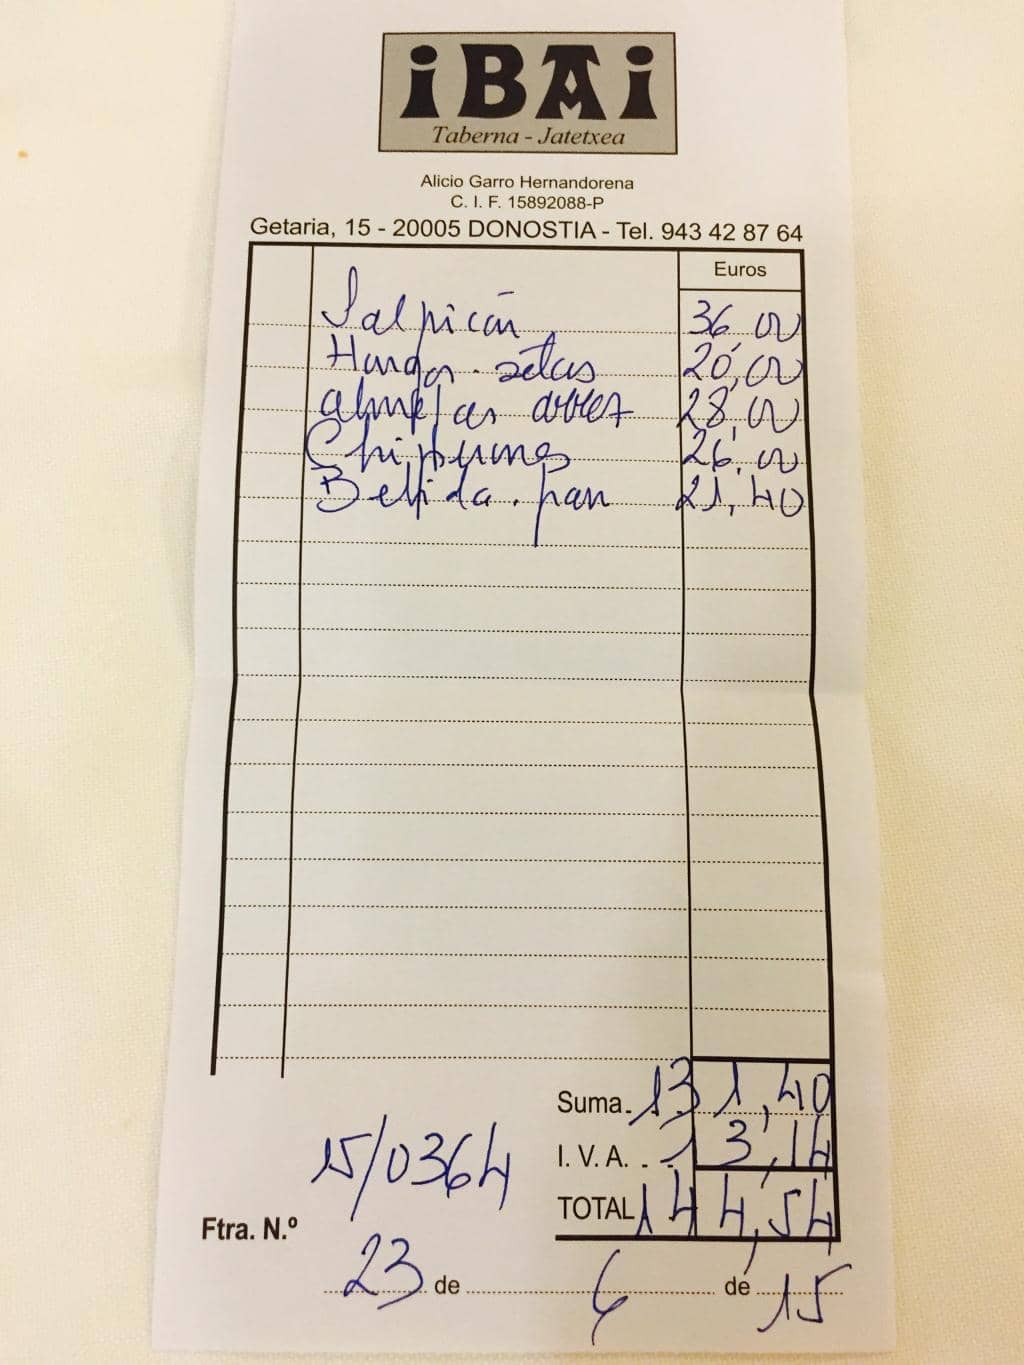 iBAi
Taberna - Jatetxea
Alicio Garro Hernandorena
C. I. F. 15892088-P
Getaria, 15 - 20005 DONOSTIA - Tel. 943 42 87 64
Euros
Salpicón 36,00
setas 20,00
almejas 28,00
Chipirones 26,00
Bebida. pan 21,40
Suma. 131,40
I. V. A. 13,14
TOTAL 144,54
15/0364
Ftra. N.º
23 de 6 de 15